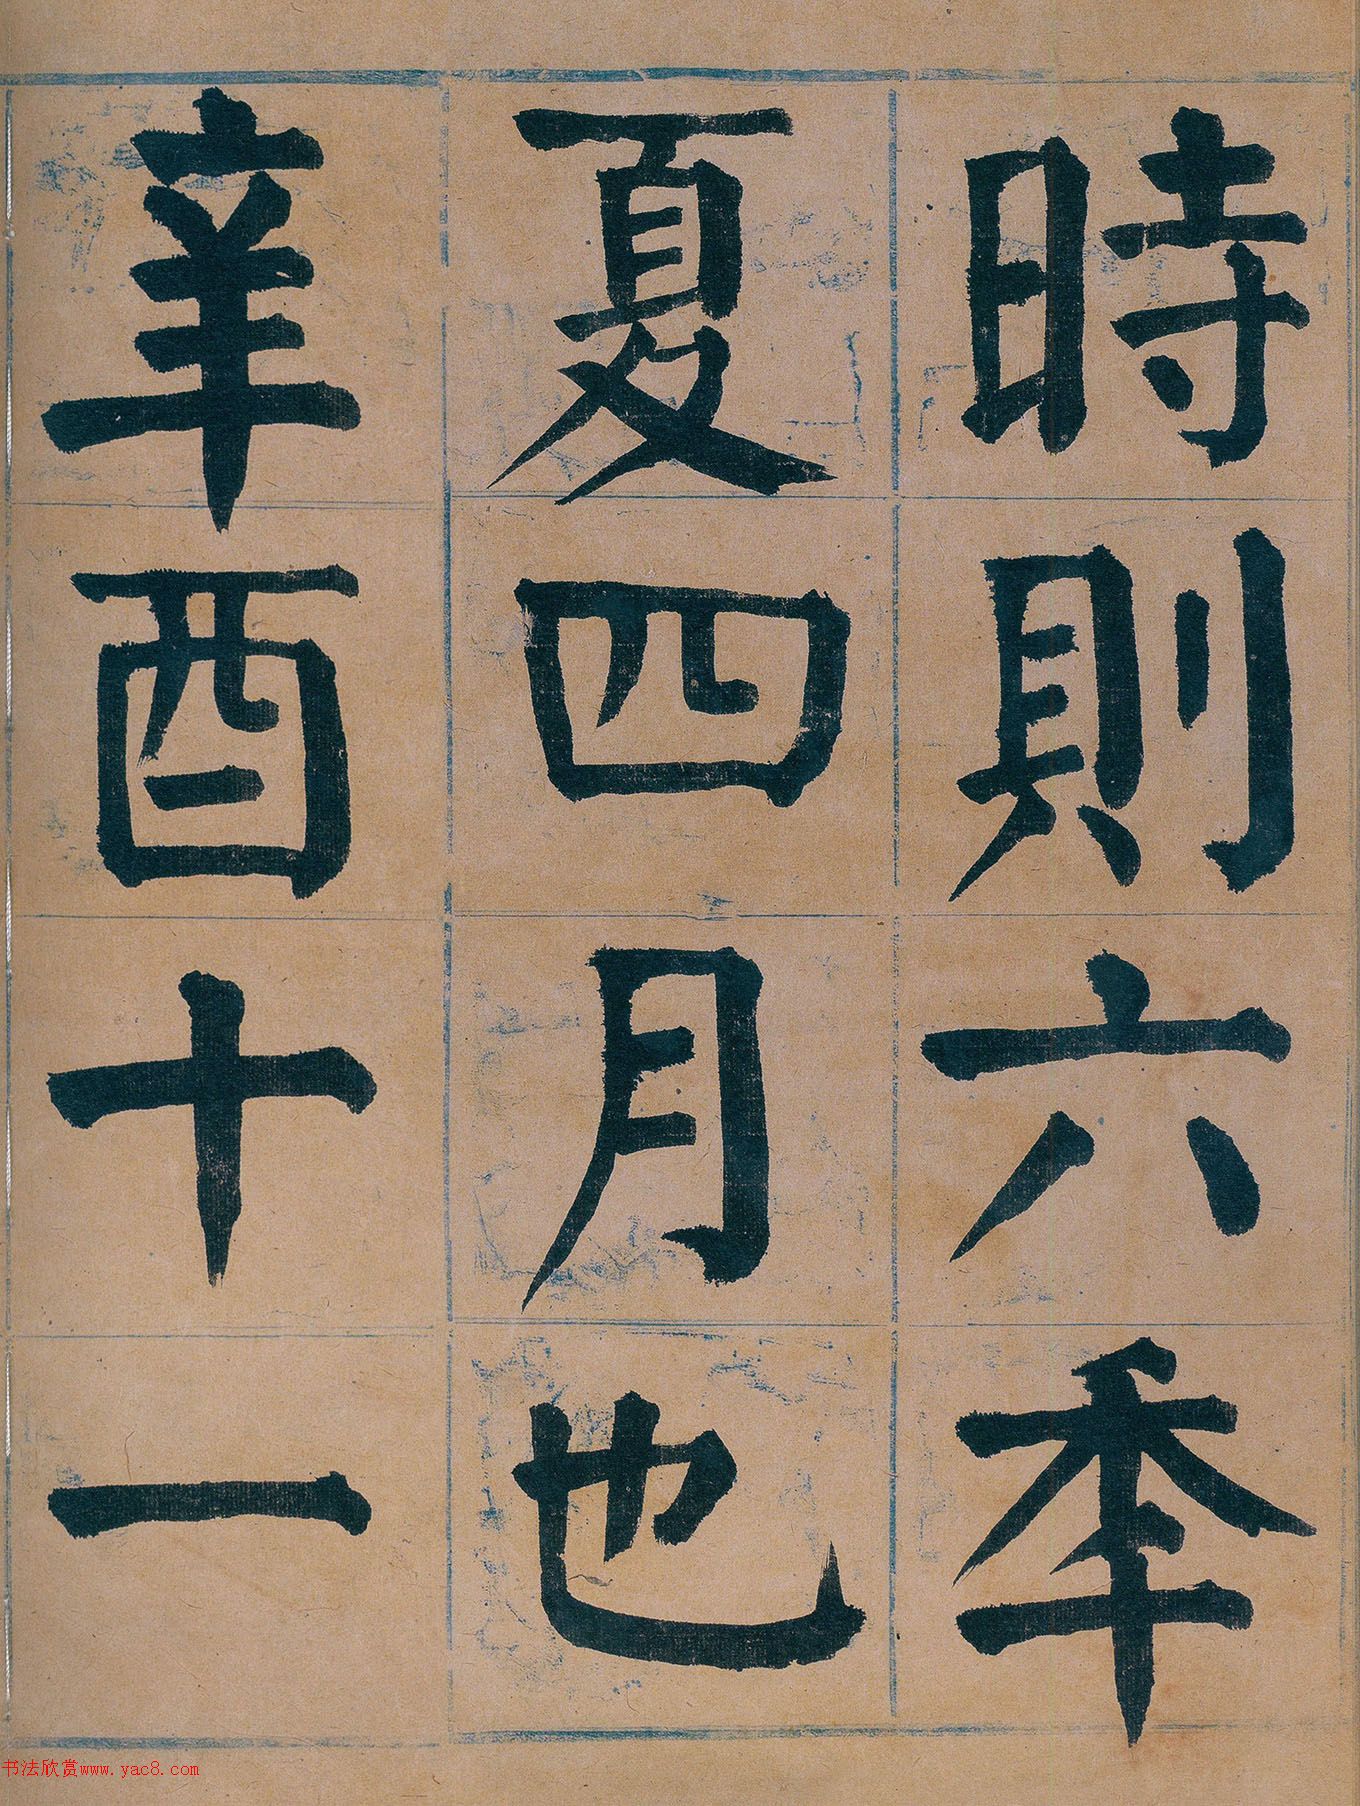 時則六秊
夏四月也
辛酉十一
书法欣赏www.yac8.com